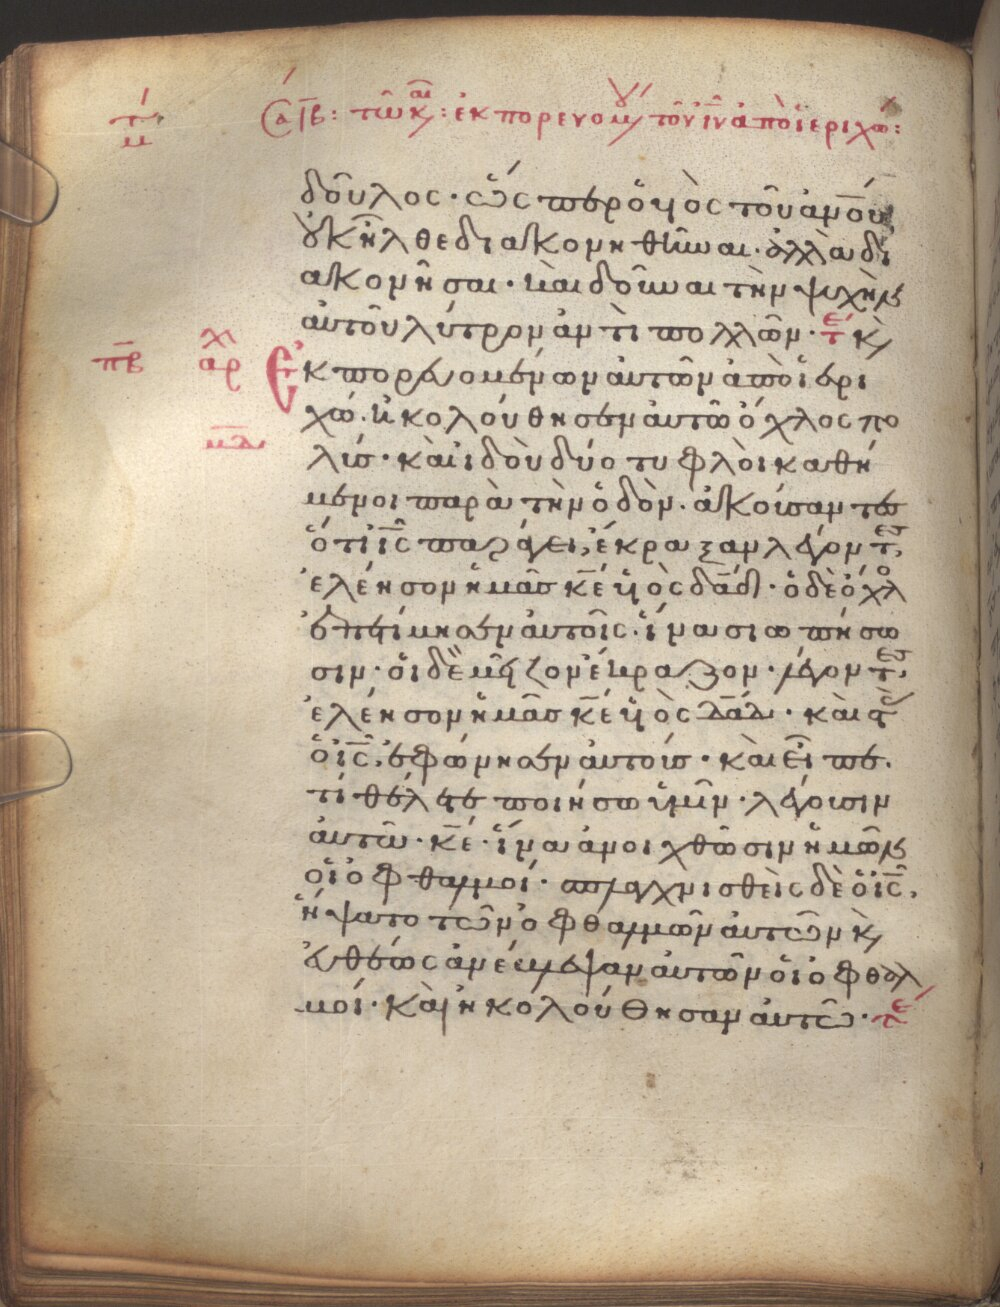 Σα ιβ: τῶ κ αι: ἐκπορευομ τοῦ ιυ ἀπὸ ἱεριχω:
δοῦλος· ὥσπερ ὁ υἱὸς τοῦ ἀνου
οὐκ ἦλθε διακονηθῆναι· ἀλλὰ δι
ακονῆσαι· καὶ δοῦναι τὴν ψυχὴν
αὐτοῦ λύτρον ἀντὶ πολλῶν· τε κ
πβ χι αρ Ἐκπορευομένων αὐτῶν ἀπὸ ἱερι
χώ· ἠκολούθησεν αὐτῶ ὄχλος πο
λύσ· καὶ ἰδοὺ δύο τυφλοὶ καθή
μενοι παρὰ τὴν ὁδὸν· ἀκούσαντεσ
ὅτι ις παράγει, ἔκραξαν λέγοντες,
ἐλέησον ἡμᾶσ κε υἱὸς δαδ· ὁ δὲ ὄχλο
ἐπετίμησεν αὐτοῖς· ἵνα σιωπήσω
σιν· οἱ δὲ μεῖζον ἔκραζον· λέγοντες,
ἐλέησον ἡμᾶσ κε υἱὸς δαδ· καὶ στ
ὁ ις, ἐφώνησεν αὐτούσ· καὶ εἶπεν·
τί θέλετε ποιήσω ὑμῖν· λέγουσιν
αὐτῶ· κε· ἵνα ἀνοιχθῶσιν ἡμῶν
οἱ ὀφθαλμοί· σπλαγχνισθεὶς δὲ ὁ ις,
ἥψατο τῶν ὀφθαλμῶν αὐτῶν κ
εὐθέως ἀνέβλεψαν αὐτῶν οἱ ὀφθαλ
μοί· καὶ ἠκολούθησαν αὐτῶ· τε